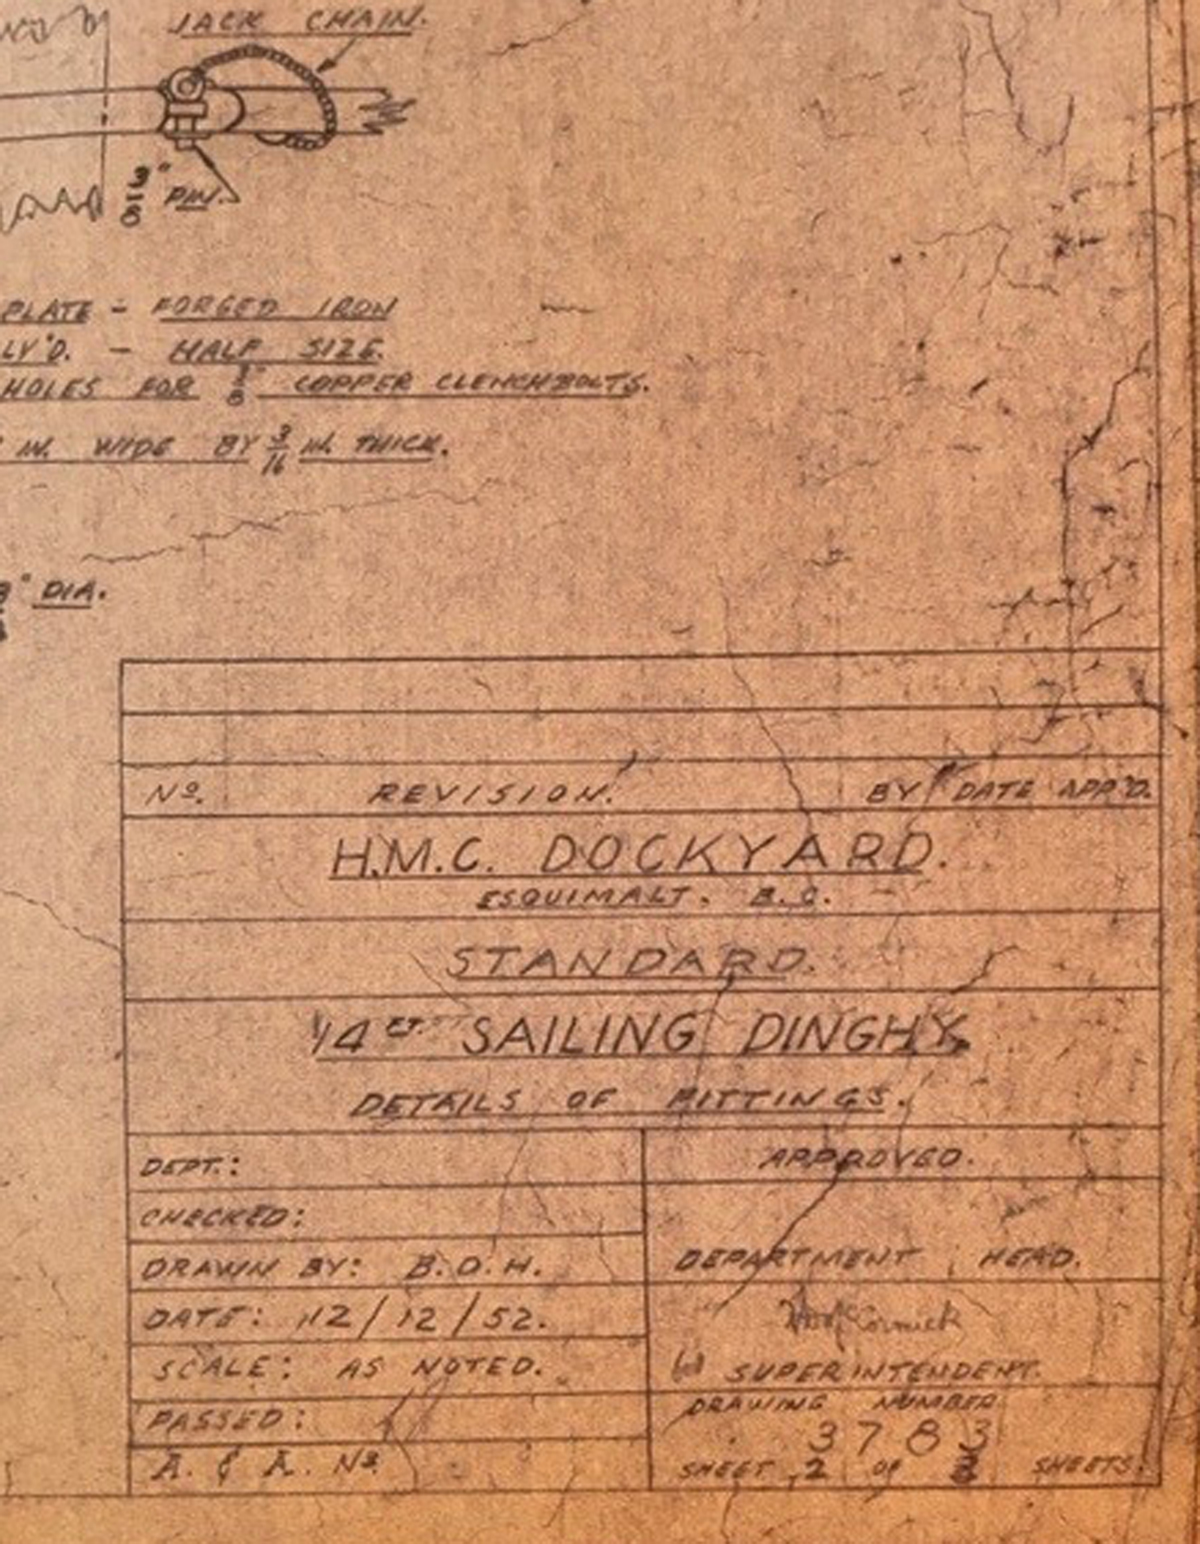 JACK CHAIN.
3/8" PIN.
PLATE - FORGED IRON
LY'D. - HALF SIZE.
HOLES FOR COPPER CLENCHBOLTS.
IN. WIDE BY 3/16 IN. THICK.
" DIA.
Nº. REVISION. BY DATE APP'D.
H.M.C. DOCKYARD.
ESQUIMALT. B.C.
STANDARD.
14 FT. SAILING DINGHY
DETAILS OF FITTINGS.
DEPT.:
APPROVED.
CHECKED:
DRAWN BY: B.O.H.
DEPARTMENT HEAD.
DATE: 12/12/52.
SCALE: AS NOTED.
SUPERINTENDENT.
PASSED:
DRAWING NUMBER
3783
A. & A. Nº
SHEET 2 OF SHEETS.